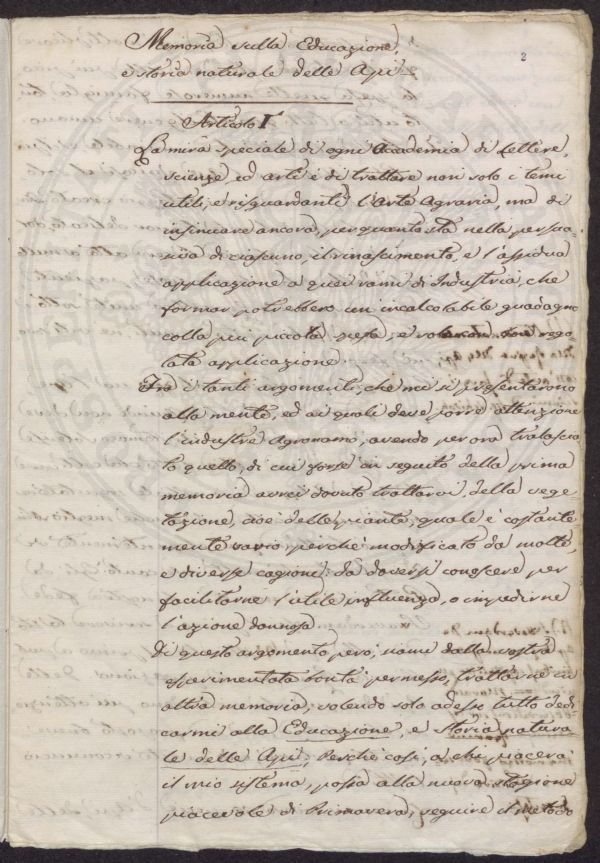 Memoria sulla Educazione,
e storia naturale delle Api
2
Articolo I°
La mira speciale di ogni Accademia di Lettere,
scienze ed arti è di trattare non solo i temi
utili, e risguardanti l'Arte Agraria, ma di
insinuare ancora, per quanto stà nella persua-
siva di ciascuno, il rinascimento, e l'assidua
applicazione a quei rami di Industria, che
formar potrebbero un incalcolabile guadagno
colla più piccola spesa, e rego-
lata applicazione.
Tra i tanti argomenti, che mi si presentarono
alla mente, ed ai quali deve porre attenzione
l'industre Agronomo, avendo per ora tralascia-
to quello, di cui forse in seguito della prima
memoria avrei dovuto trattarvi, della vege-
tazione, cioè delle piante, quale è costante-
mente vario perchè modificato da molte,
e diverse cagioni; da doversi conoscere per
facilitarne l'utile influenza, o impedirne
l'azione dannosa.
Di questo argomento però, siami dalla vostra
esperimentata bontà permesso, trattarne in
altra memoria, volendo solo adesso tutto dedi-
carmi alla Educazione, e Storia natura-
le delle Api; Perchè così, a chi piacerà
il mio sistema, possa alla nuova stagione
piacevole di Primavera, seguire il metodo